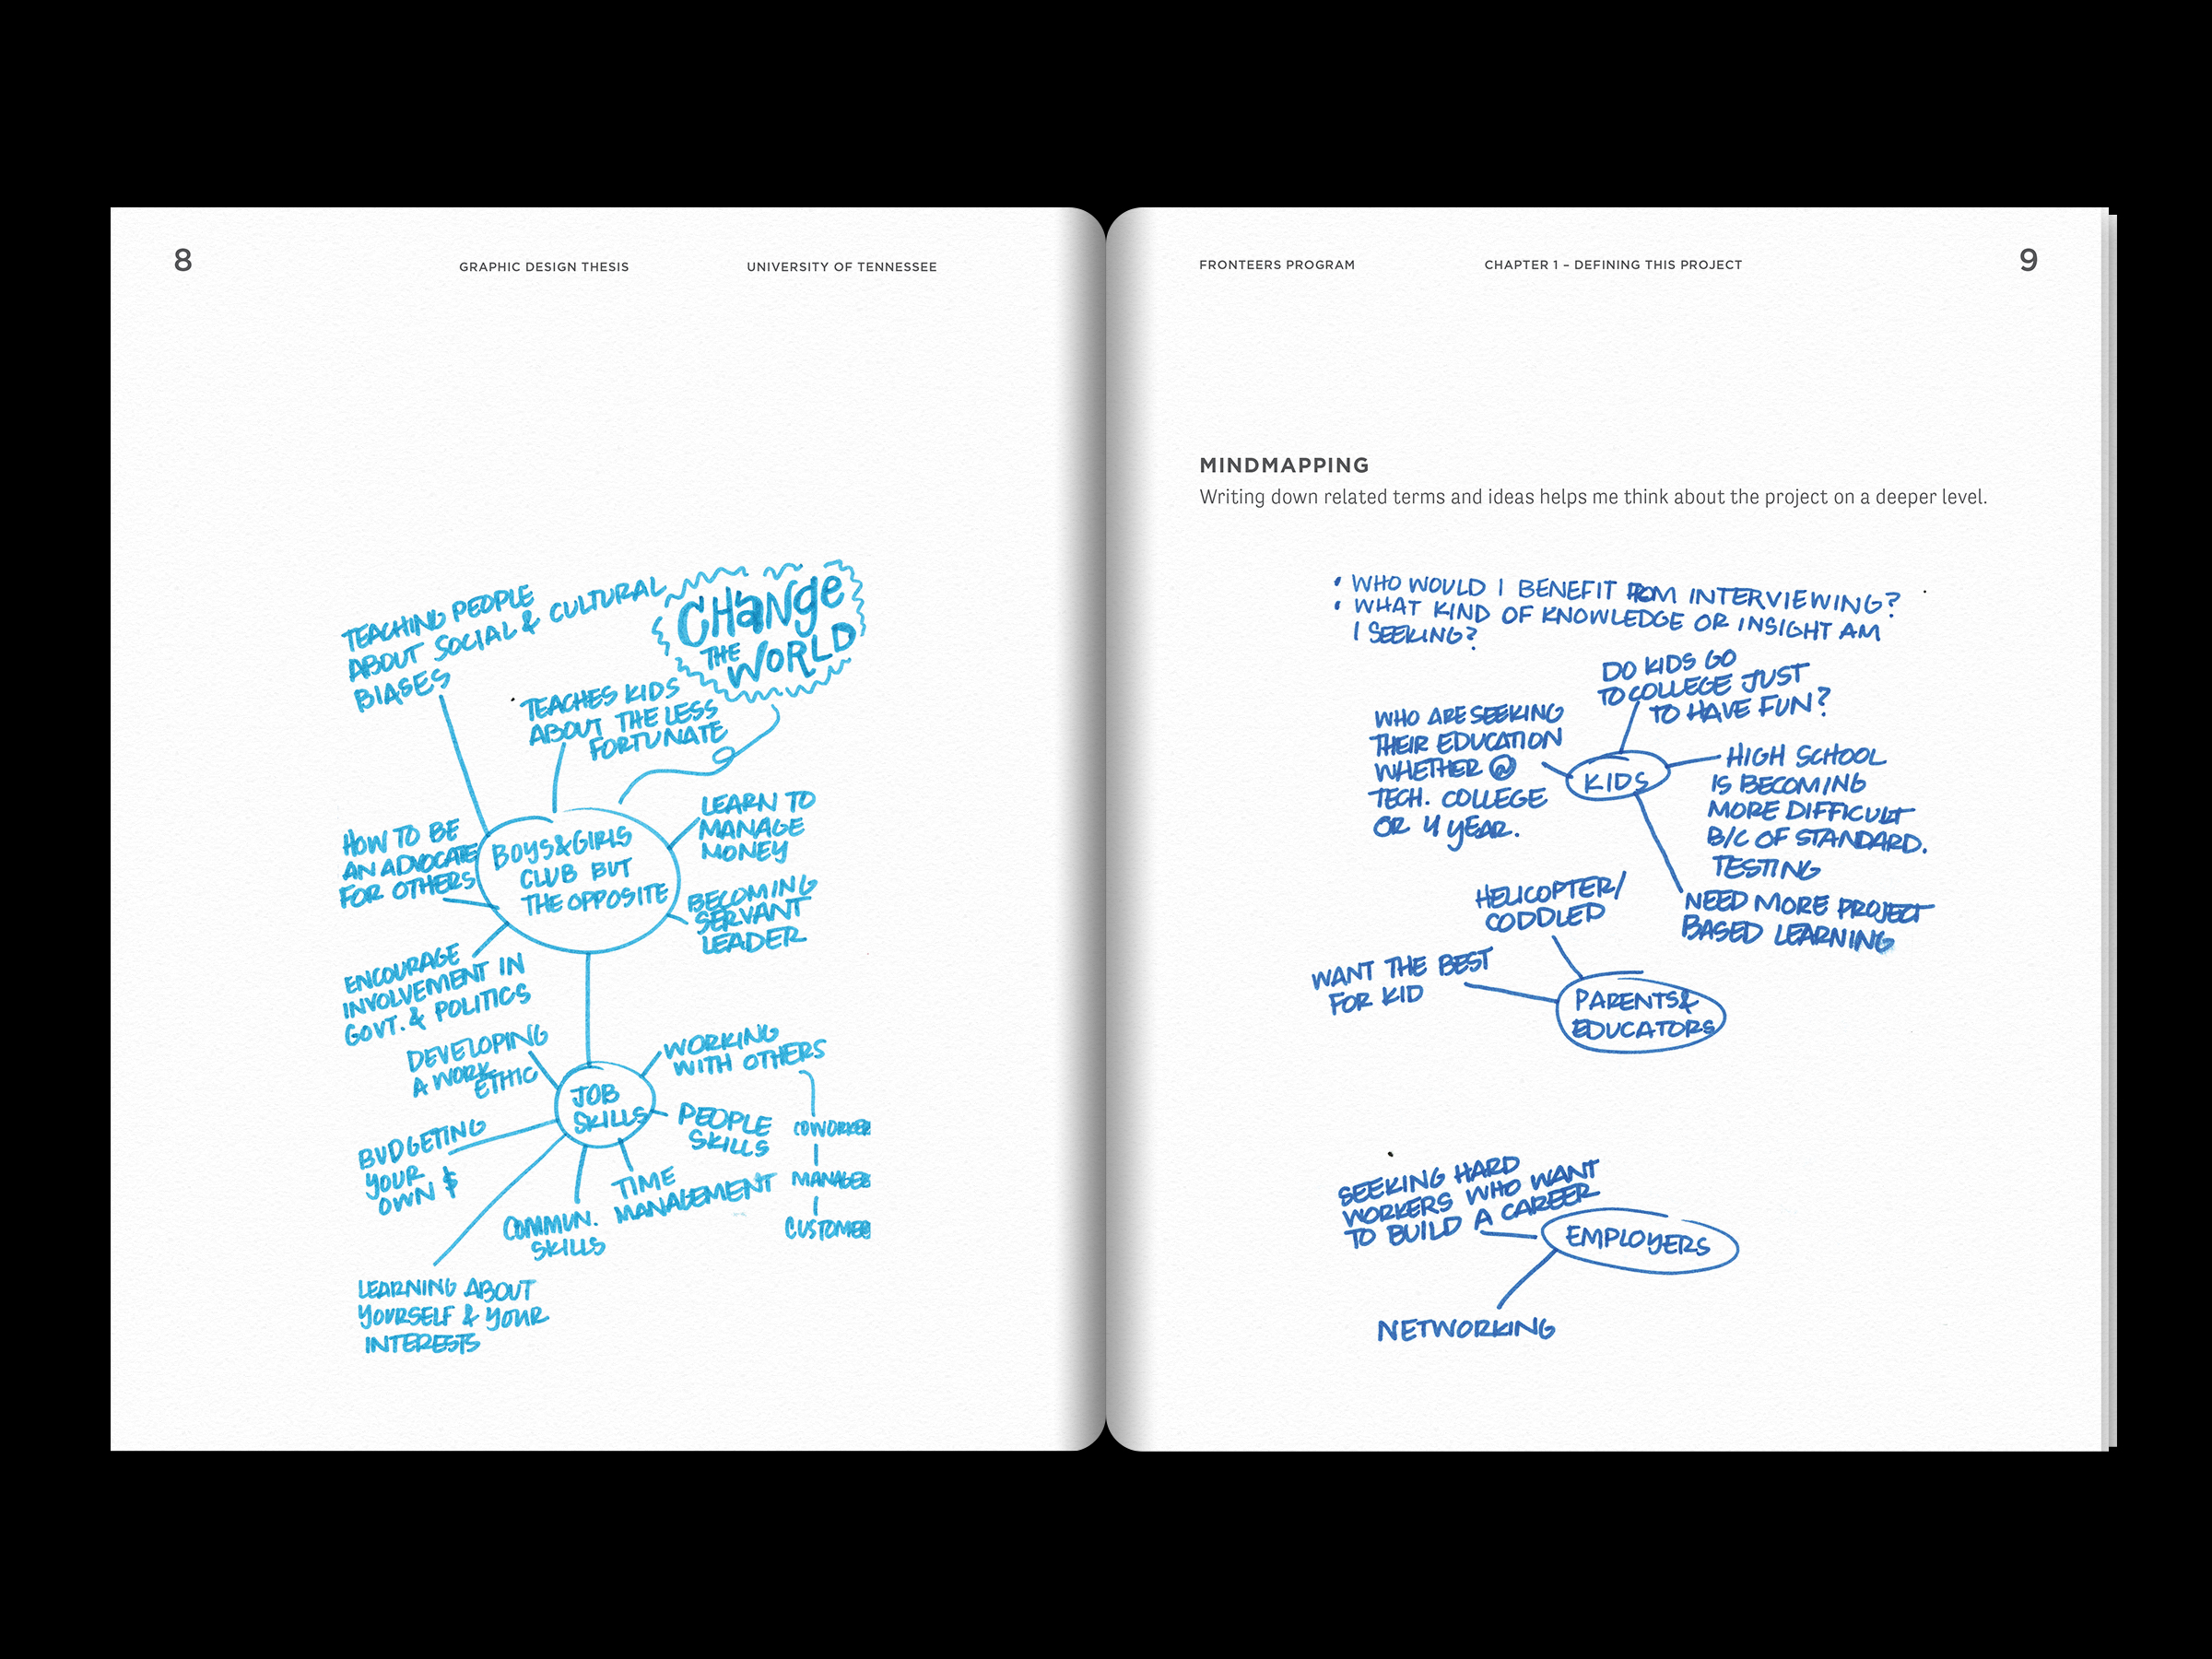 8
GRAPHIC DESIGN THESIS
UNIVERSITY OF TENNESSEE
TEACHING PEOPLE
ABOUT SOCIAL & CULTURAL
BIASES
CHANGE
THE
WORLD
TEACHES KIDS
ABOUT THE LESS
FORTUNATE
HOW TO BE
AN ADVOCATE
FOR OTHERS
BOYS & GIRLS
CLUB BUT
THE OPPOSITE
LEARN TO
MANAGE
MONEY
BECOMING
SERVANT
LEADER
ENCOURAGE
INVOLVEMENT IN
GOVT. & POLITICS
DEVELOPING
A WORK
ETHIC
JOB
SKILLS
WORKING
WITH OTHERS
COWORKER
MANAGER
CUSTOMER
PEOPLE
SKILLS
BUDGETING
YOUR
OWN $
TIME
MANAGEMENT
COMMUN.
SKILLS
LEARNING ABOUT
YOURSELF & YOUR
INTERESTS
FRONTEERS PROGRAM
CHAPTER 1 – DEFINING THIS PROJECT
9
MINDMAPPING
Writing down related terms and ideas helps me think about the project on a deeper level.
• WHO WOULD I BENEFIT FROM INTERVIEWING?
• WHAT KIND OF KNOWLEDGE OR INSIGHT AM
I SEEKING?
DO KIDS GO
TO COLLEGE JUST
TO HAVE FUN?
WHO ARE SEEKING
THEIR EDUCATION
WHETHER @
TECH. COLLEGE
OR 4 YEAR.
KIDS
HIGH SCHOOL
IS BECOMING
MORE DIFFICULT
B/C OF STANDARD.
TESTING
NEED MORE PROJECT
BASED LEARNING
HELICOPTER/
CODDLED
WANT THE BEST
FOR KID
PARENTS &
EDUCATORS
SEEKING HARD
WORKERS WHO WANT
TO BUILD A CAREER
EMPLOYERS
NETWORKING